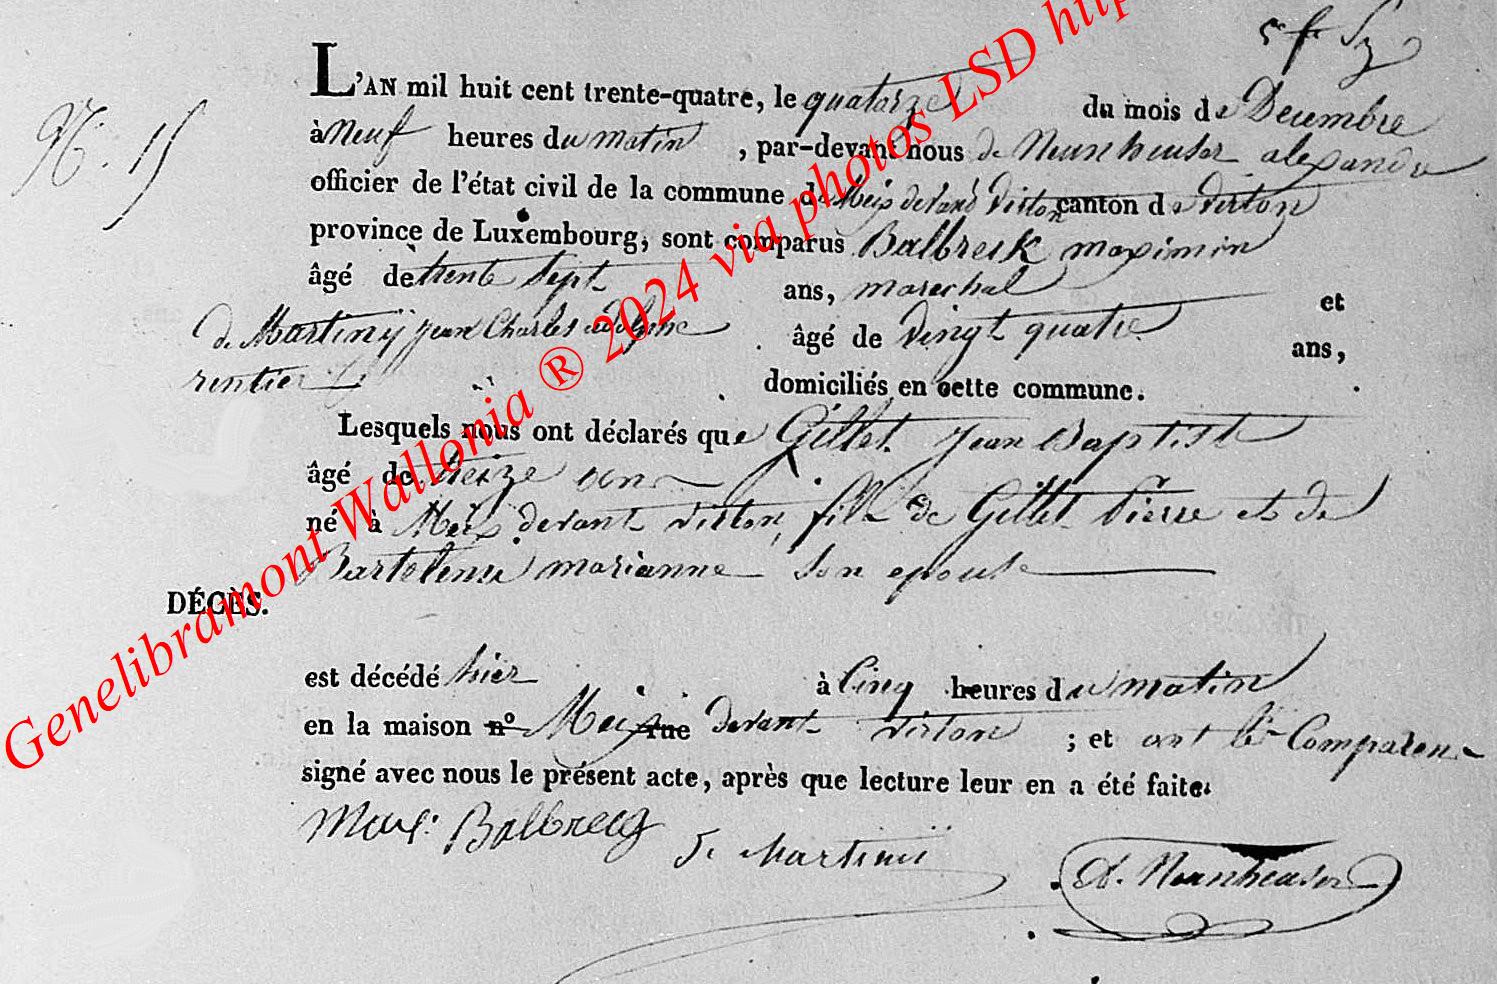 5e f Sz
N. 15
L'AN mil huit cent trente-quatre, le quatorze du mois de Decembre
à Neuf heures du matin, par-devant nous de Neunheuser alexandre
officier de l'état civil de la commune de Meix devant Virton canton de Virton
province de Luxembourg, sont comparus Balbreck maximin
âgé de trente sept ans, marechal et
de Martinÿ jean Charles adolphe âgé de Vingt quatre ans,
rentier domiciliés en cette commune.
Lesquels nous ont déclarés que Gillet jean Baptiste
âgé de treize an
né à Meix devant virton, fils de Gillet Pierre et de
Bartelemi marianne son epouse
DÉCÈS.
est décédé hier à Cinq heures du matin
en la maison nº Meix rue devant virton ; et ont les Comparen
signé avec nous le présent acte, après que lecture leur en a été faite.
Max: Balbreck de Martinÿ A. Neunheuser
Genelibramont Wallonia ® 2024 via photos LSD http